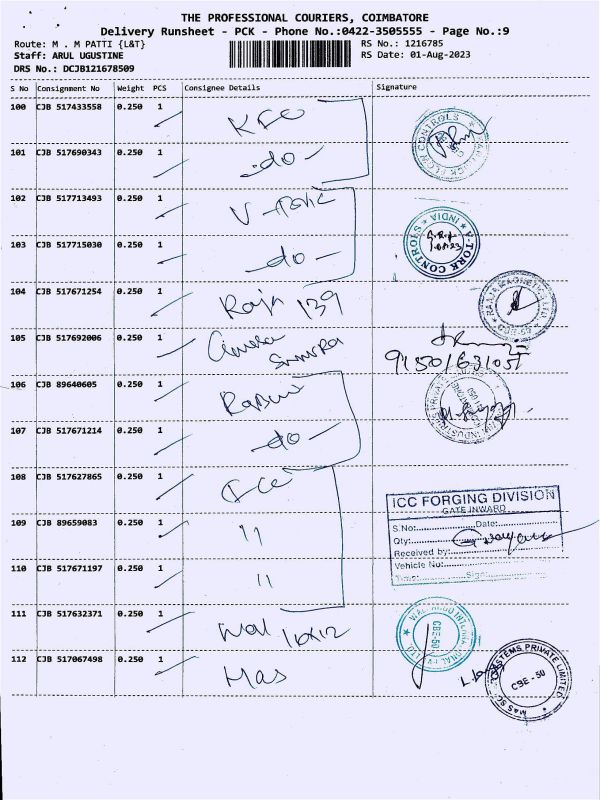 THE PROFESSIONAL COURIERS, COIMBATORE
Delivery Runsheet - PCK - Phone No.:0422-3505555 - Page No.:9
Route: M . M PATTI {L&T} RS No.: 1216785
Staff: ARUL UGUSTINE RS Date: 01-Aug-2023
DRS No.: DCJB121678509
S No Consignment No Weight PCS Consignee Details Signature
100 CJB 517433558 0.250 1
101 CJB 517690343 0.250 1 -do-
102 CJB 517713493 0.250 1
V-TORK CONTROLS INDIA
103 CJB 517715030 0.250 1 -do-
104 CJB 517671254 0.250 1 139
CBE-50
105 CJB 517692006 0.250 1
106 CJB 89640605 0.250 1
107 CJB 517671214 0.250 1 -do-
108 CJB 517627865 0.250 1
ICC FORGING DIVISION
GATE INWARD
S.No: Date:
109 CJB 89659083 0.250 1 11
Qty:
Received by:
Vehicle No:
110 CJB 517671197 0.250 1 11
Time: Sign:
111 CJB 517632371 0.250 1
CBE-50
112 CJB 517067498 0.250 1 Mas
CBE-50